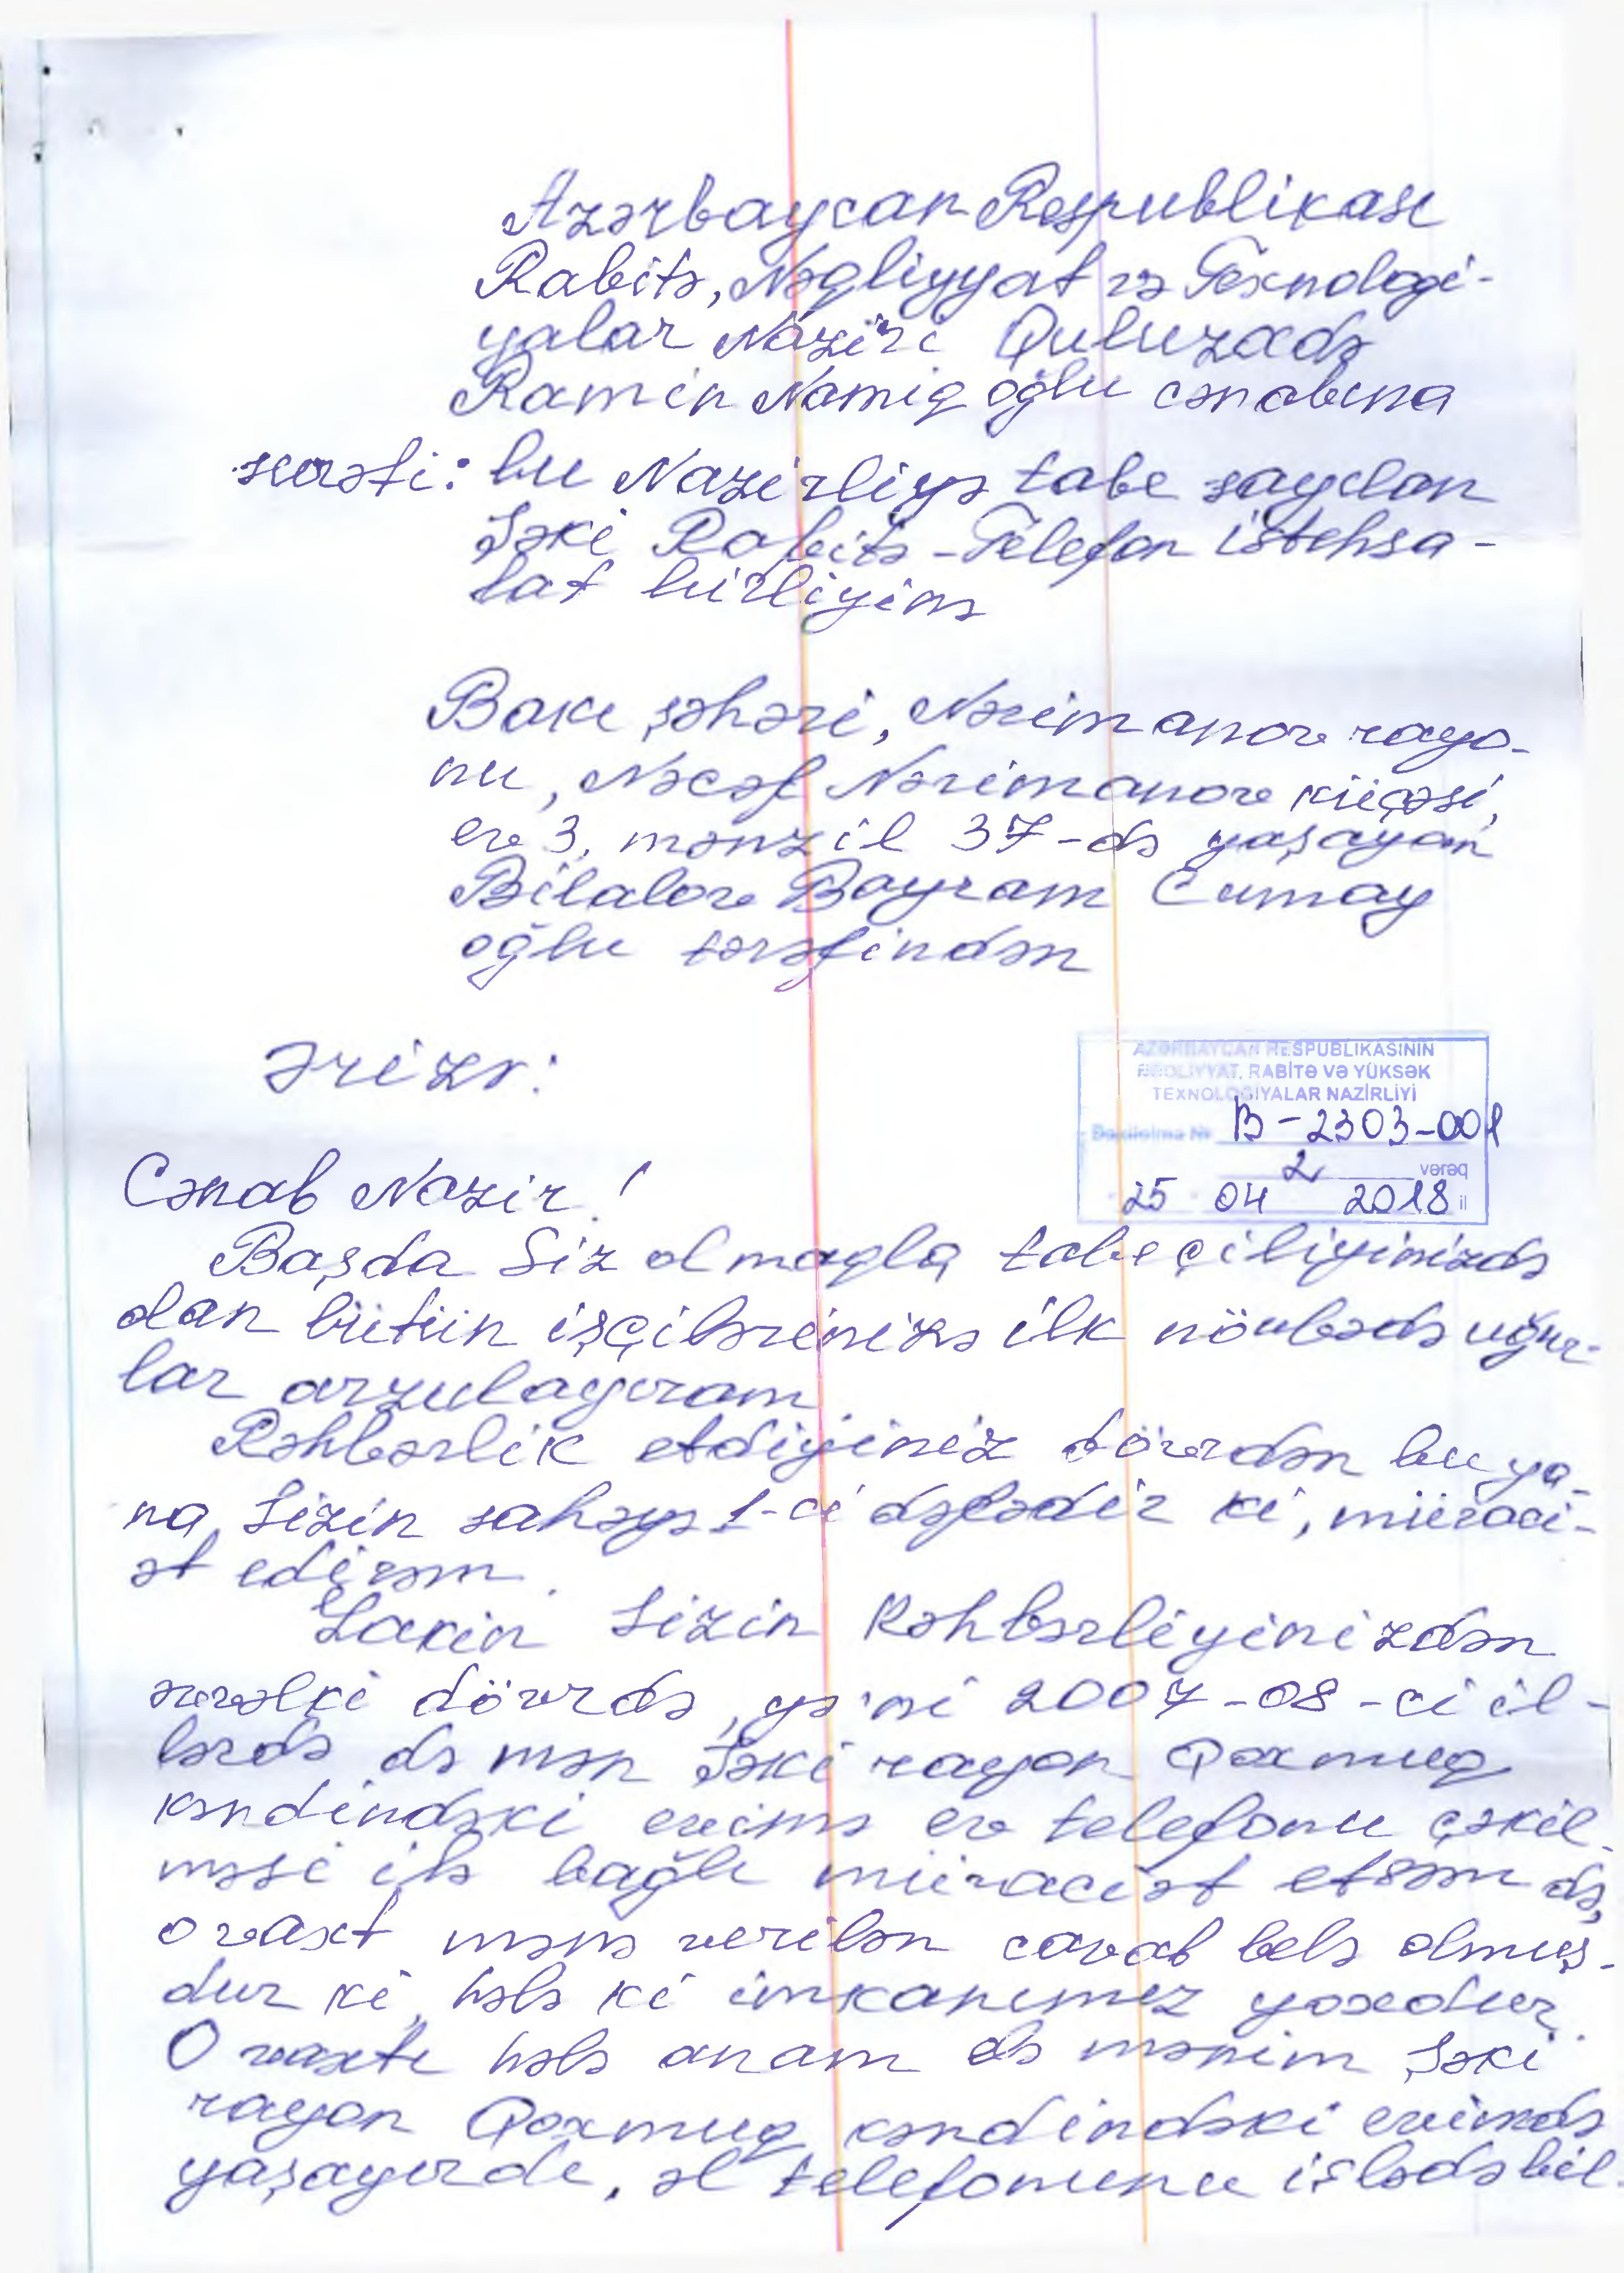 Azərbaycan Respublikası
Rabitə, Nəqliyyat və Texnologi-
yalar Naziri Quluzadə
Ramin Namiq oğlu cənabına
surəti: bu Nazirliyə tabe sayılan
Şəki Rabitə-Telefon istehsa-
lat birliyinə
Bakı şəhəri, Nərimanov rayo-
nu, Nəcəf Nərimanov küçəsi,
ev 3, mənzil 37-də yaşayan
Bilalov Bayram Cumay
oğlu tərəfindən
Ərizə:
AZƏRBAYCAN RESPUBLİKASININ
NƏQLİYYAT, RABİTƏ VƏ YÜKSƏK
TEXNOLOGİYALAR NAZİRLİYİ
Daxilolma № B-2303-001
2 vərəq
25 04 2018 il
Cənab Nazir!
Başda Siz olmaqla tabeçiliyinizdə
olan bütün işçilərinizə ilk növbədə uğur-
lar arzulayıram.
Rəhbərlik etdiyiniz dövrdən bu ya-
na Sizin sahəyə 1-ci dəfədir ki, müraci-
ət edirəm.
Lakin Sizin Rəhbərliyinizdən
əvvəlki dövrdə, yə'ni 2007-08-ci il-
lərdə də mən Şəki rayon Qoxmuq
kəndindəki evimə ev telefonu çəkil-
məsi ilə bağlı müraciət etsəm də,
o vaxt mənə verilən cavab belə olmuş-
dur ki, hələ ki imkanımız yoxdur.
O vaxtı hələ anam da mənim Şəki
rayon Qoxmuq kəndindəki evimdə
yaşayırdı, əl telefonunu işlədə bil-